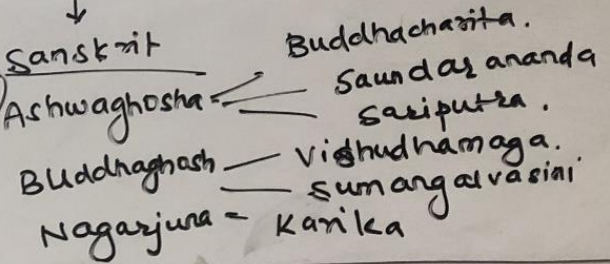 Sanskrit
Buddhacharita.
Ashwaghosha
Saundarananda
Sariputra.
Buddhaghosh — Vishudhamaga.
Sumangalvasini
Nagarjuna = Karika